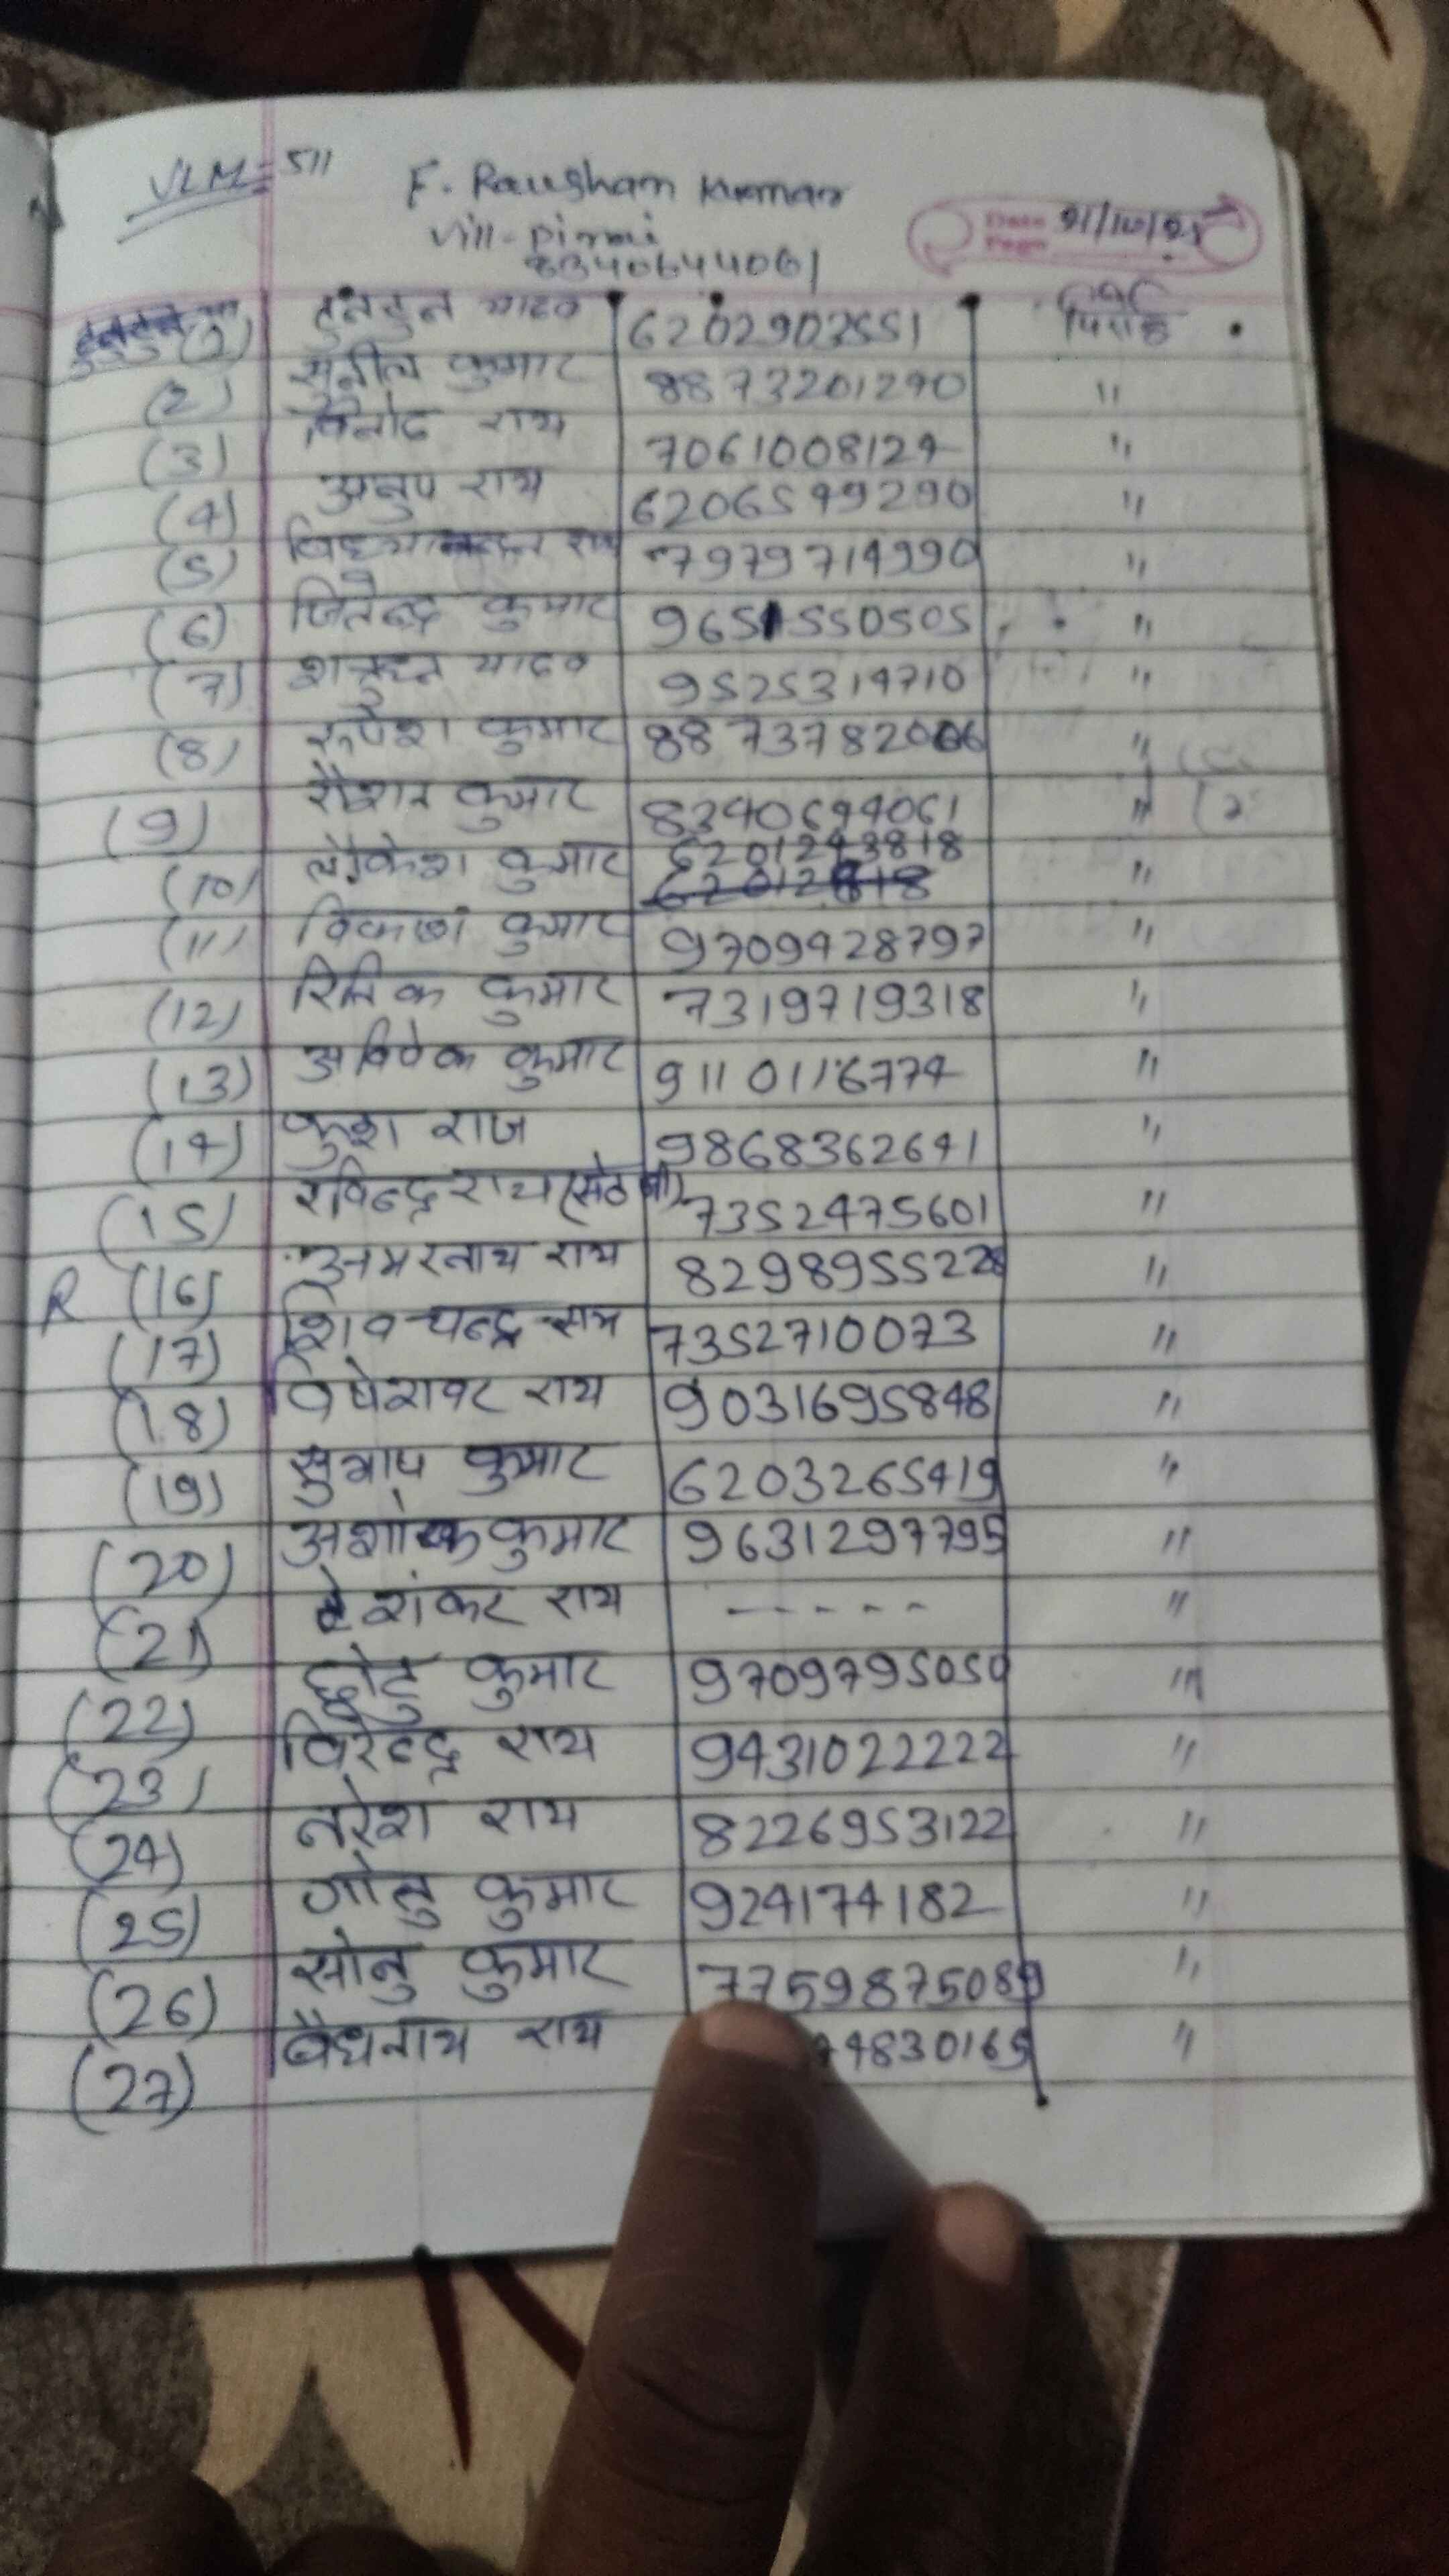 VLM = 511
F. Rausham Kumar
Vill - Pirroi
8340644061
Date 21/10/25
Page
(1) टुनटुन यादव 6202903551
(2) सुनील कुमार 8873201290 "
(3) विनोद राय 7061008124 "
(4) अनुप राय 6206599290 "
(5) राय 7979714990 "
(6) जितेन्द्र कुमार 9651550505 "
(7) यादव 9525314710 "
(8) रूपेश कुमार "
(9) रौशन कुमार 8340644061 "
(10) लोकेश कुमार 6201243818 "
(11) कुमार 9709428797 "
(12) रितिक कुमार 7319719318 "
(13) अविवेक कुमार 9110116774 "
(14) कुश राज 9868362641 "
(15) रविन्द्र राय (सेठ जी) 7352475601 "
R (16) अमरनाथ राय 8298955228 "
(17) शिव चन्द्र राय 7352710073 "
(18) विषेशवर राय 9031695848 "
(19) सुभाष कुमार 6203265419 "
(20) अशोक कुमार 9631297795 "
(21) शंकर राय ----- "
(22) छोटु कुमार 9709795050 "
(23) विरेन्द्र राय 9431022222 "
(24) नरेश राय 8226953122 "
(25) गोलु कुमार 924174182 "
(26) सोनु कुमार 7759875089 "
(27) बैधनाथ राय 4830165 "